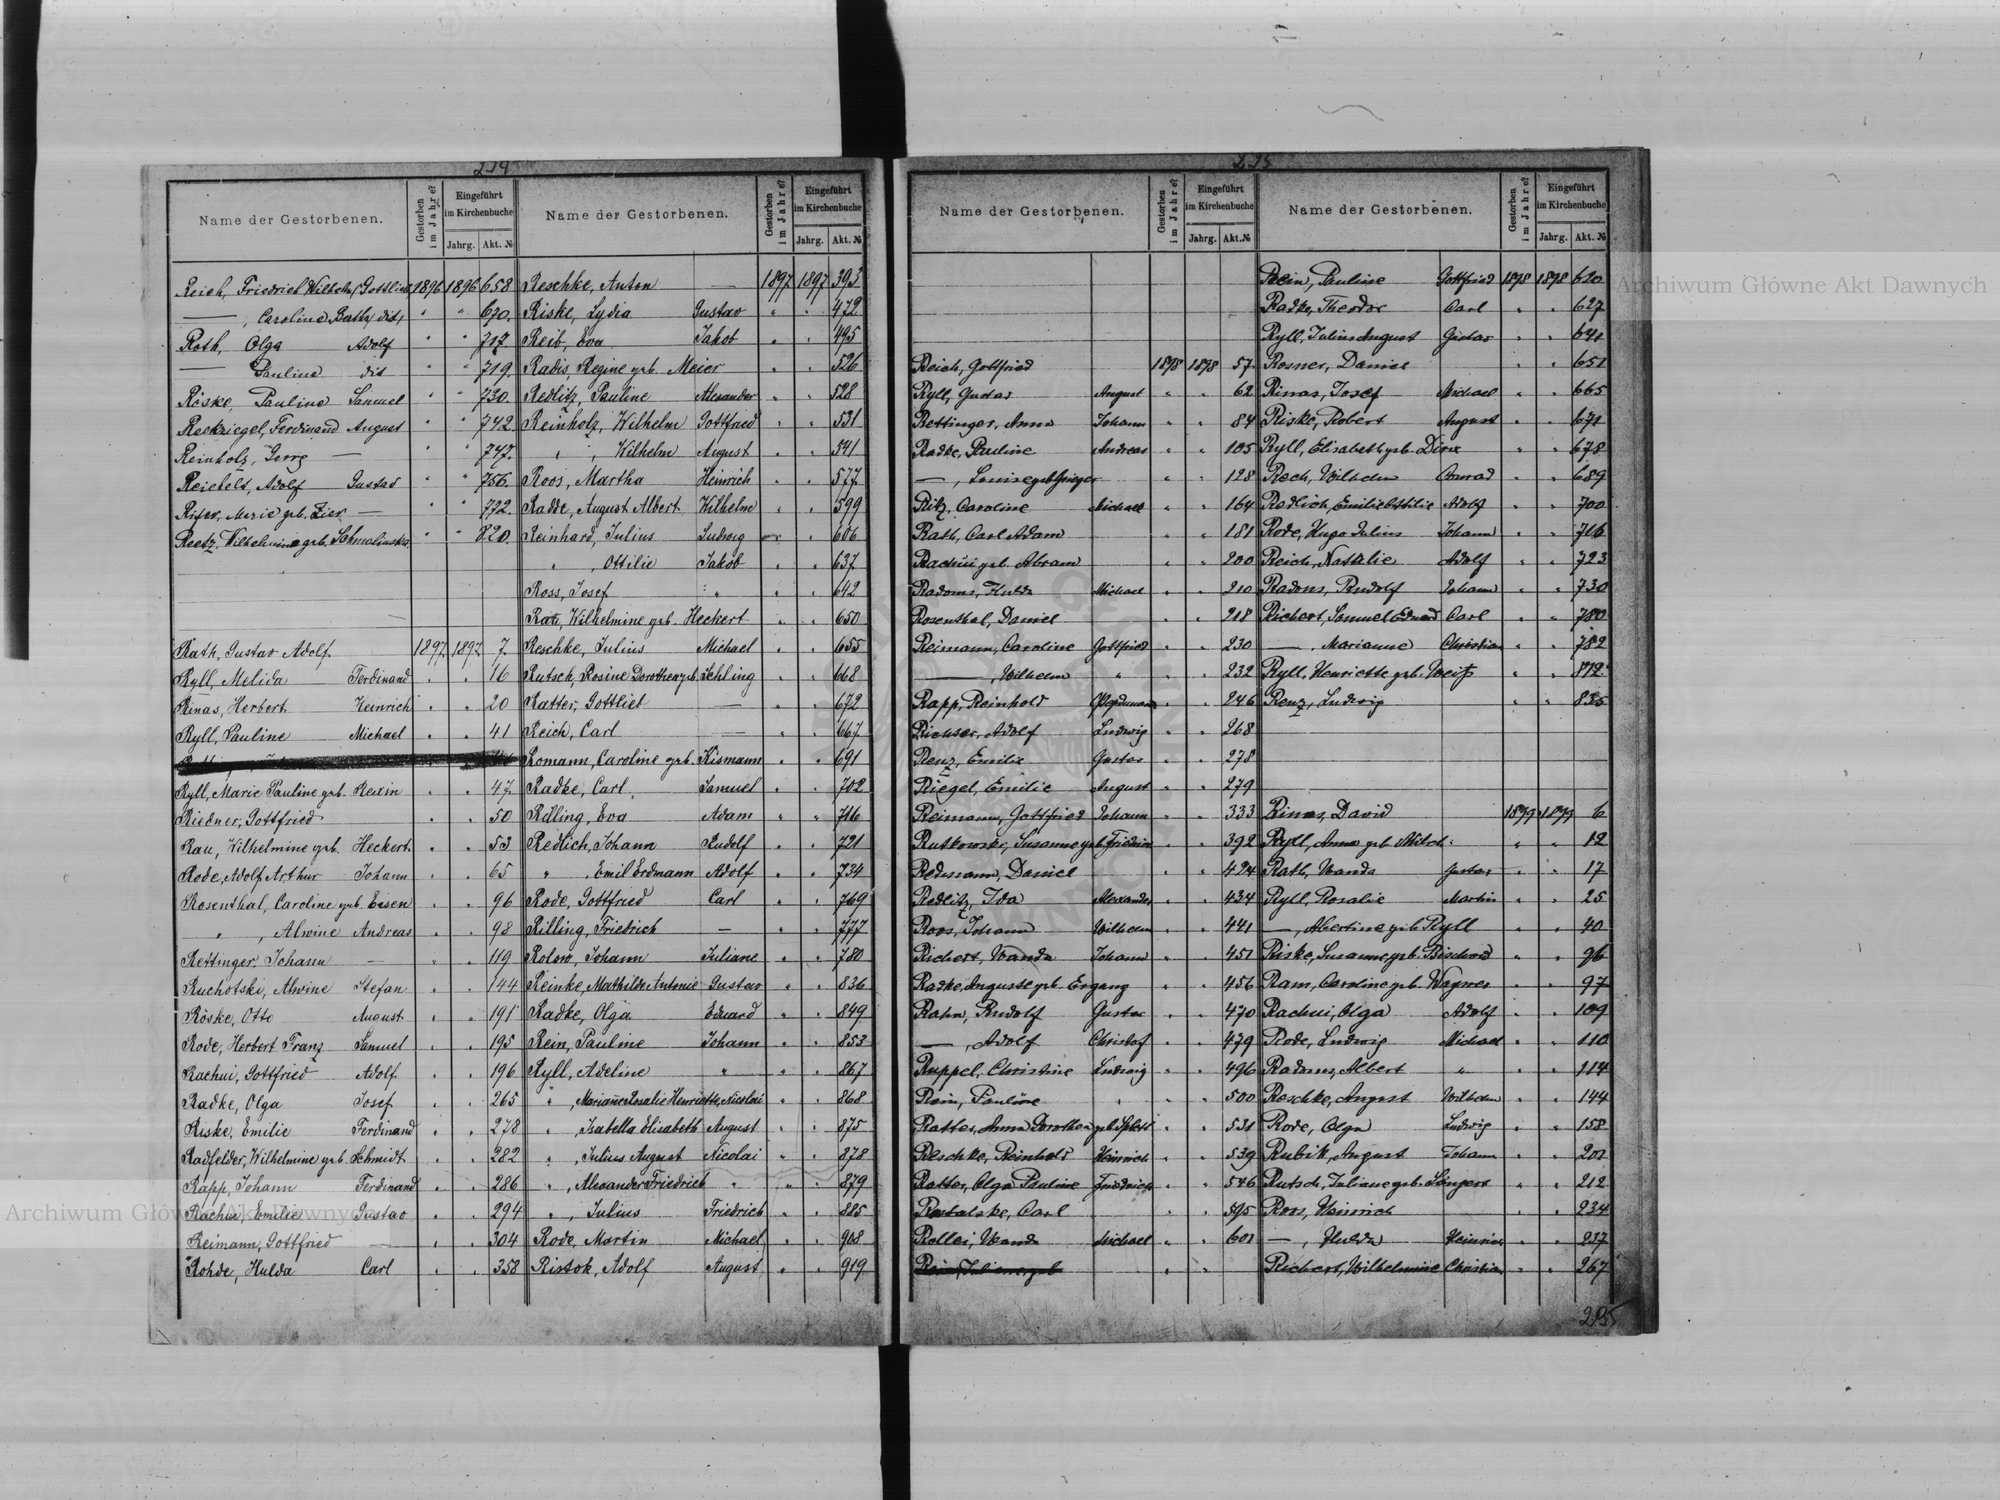 294
Name der Gestorbenen. Gestorben im Jahre? Eingeführt im Kirchenbuche Jahrg. Akt. №
Reich, Friedrich Wilhelm Gottlieb 1896 1896 658
—, Caroline Bertha dit " " 670.
Roth, Olga Adolf " " 717
— Pauline dit " " 719.
Röske, Pauline Samuel " " 730.
Reckziegel, Ferdinand August " " 742
Reinholz, Georg — " " 747.
Reichelt, Adolf Gustav " " 756.
Rifer, Marie geb. Zier — " " 772.
Reetz, Wilhelmine geb. " " 820.
Rath, Gustav Adolf 1897 1897 7.
Ryll, Melida Ferdinand " " 16
Rinas, Herbert Heinrich " " 20
Ryll, Pauline Michael " " 41
Ryll, Marie Pauline geb. Rexin " " 47.
Riedner, Gottfried " " 50
Rau, Wilhelmine geb. Heckert " " 53
Rode, Adolf Arthur Johann " " 65
Rosenthal, Caroline geb. Eisen " " 96
" , Alwine Andreas " " 98
Rettinger, Johann — " " 119
Ruchotski, Alwine Stefan " " 144
Röske, Otto August " " 191
Rode, Herbert Franz Samuel " " 195
Rachui, Gottfried Adolf " " 196
Radke, Olga Josef " " 265
Riske, Emilie Ferdinand " " 278
Radfelder, Wilhelmine geb. Schmidt " " 282
Rapp, Johann Ferdinand " " 286
Rachui, Emilie Gustav " " 294
Reimann, Gottfried — " " 304
Rohde, Hulda Carl " " 358
Name der Gestorbenen. Gestorben im Jahre? Eingeführt im Kirchenbuche Jahrg. Akt. №
Reschke, Anton — 1897 1897 393
Riske, Lydia Gustav " " 472
Reib, Eva Jakob " " 495
Radis, Regine geb. Meier " " 526
Redlitz, Pauline Alexander " " 528
Reinholz, Wilhelm Gottfried " " 531
" , Wilhelm August " " 541
Roos, Martha Heinrich " " 577
Radde, August Albert Wilhelm " " 599
Reinhard, Julius Ludwig " " 606
" , Ottilie Jakob " " 637
Ross, Josef " " " 642
Rau, Wilhelmine geb. Heckert " " 650
Reschke, Julius Michael " " 655
Rutsch, Rosine Dorothea geb. Schling " " 668
Ratter, Gottlieb — " " 672
Reich, Carl — " " 667
Romann, Caroline geb. Kismann " " 691
Radke, Carl Samuel " " 702
Rilling, Eva Adam " " 716
Redlich, Johann Rudolf " " 721
" , Emil Erdmann Adolf " " 734
Rode, Gottfried Carl " " 769
Rilling, Friedrich — " " 777
Rolow, Johann Juliane " " 780
Reinke, Mathilde Antonie Gustav " " 836
Radke, Olga Eduard " " 849
Rein, Pauline Johann " " 853
Ryll, Adeline " " " 867
" , Marianne Rosalie Henriette, Nicolai " " 868
" , Isabella Elisabeth August " " 875
" , Julius August Nicolai " " 878
" , Alexander Friedrich " " " 879
" , Julius Friedrich " " 885
Rode, Martin Michael " " 908
Ristok, Adolf August " " 919
295
Name der Gestorbenen. Gestorben im Jahre? Eingeführt im Kirchenbuche Jahrg. Akt. №
Reich, Gottfried 1898 1898 57.
Ryll, Gustav August " " 62
Rettinger, Anna Johann " " 84
Radke, Pauline Andreas " " 105
—, Louise geb. " " 128
Ritz, Caroline Michael " " 164
Rath, Carl Adam " " 181
Rachui geb. Abram " " 200
Radoms, Hulda Michael " " 210
Rosenthal, Daniel " " 218
Reimann, Caroline Gottfried " " 230
—, Wilhelm " " " 232
Rapp, Reinhold " " 246
Richter, Adolf Ludwig " " 268
Renz, Emilie Gustav " " 278
Riegel, Emilie August " " 279
Reimann, Gottfried Johann " " 333
Rutkowski, Susanne geb. Friedrich " " 392
Redmann, Daniel " " 424
Redlitz, Ida Alexander " " 434
Roos, Johann Wilhelm " " 441
Richert, Wanda Johann " " 451
Radke, Auguste geb. Ergang " " 456
Rahn, Rudolf Gustav " " 470
—, Adolf Christof " " 479
Ruppel, Christine Ludwig " " 496
Rein, Pauline " " " 500
Ratter, Anna Dorothea geb. Splett " " 531
Reschke, Reinhold Heinrich " " 539
Ratter, Olga Pauline Friedrich " " 546
Ratalske, Carl " " 595
Rollei, Wanda Michael " " 601
Name der Gestorbenen. Gestorben im Jahre? Eingeführt im Kirchenbuche Jahrg. Akt. №
Rein, Pauline Gottfried 1898 1898 620
Radke, Theodor Carl " " 627
Ryll, Julius August Gustav " " 641
Rosner, Daniel " " 651
Rinas, Josef Michael " " 665
Riske, Robert August " " 671
Ryll, Elisabeth geb. " " 678
Rech, Wilhelm Conrad " " 689
Redlich, Emilie Ottilie Adolf " " 700
Rode, Hugo Julius Johann " " 716
Reich, Nathalie Adolf " " 723
Radoms, Rudolf Johann " " 730
Richert, Samuel Eduard Carl " " 780
—, Marianne Christian " " 782
Ryll, Henriette geb. Weiß " " 812
Renz, Ludwig " " 835
Rinas, David 1899 1899 6
Ryll, Anna geb. " " 12
Rath, Wanda Gustav " " 17
Ryll, Rosalie Martin " " 25
—, Albertine geb. Ryll " " 40
Riske, Susanne geb. " " 96
Ram, Caroline geb. Wagner " " 97
Rachui, Olga Adolf " " 109
Rode, Ludwig Michael " " 110
Radoms, Albert " " " 114
Reschke, August Wilhelm " " 144
Rode, Olga Ludwig " " 158
Rubik, August Johann " " 201
Rutsch, Juliane geb. " " 212
Roos, Heinrich " " 234
—, Hulda Heinrich " " 237
Richert, Wilhelmine Christian " " 267
295
Archiwum Główne Akt Dawnych
Archiwum Główne Akt Dawnych